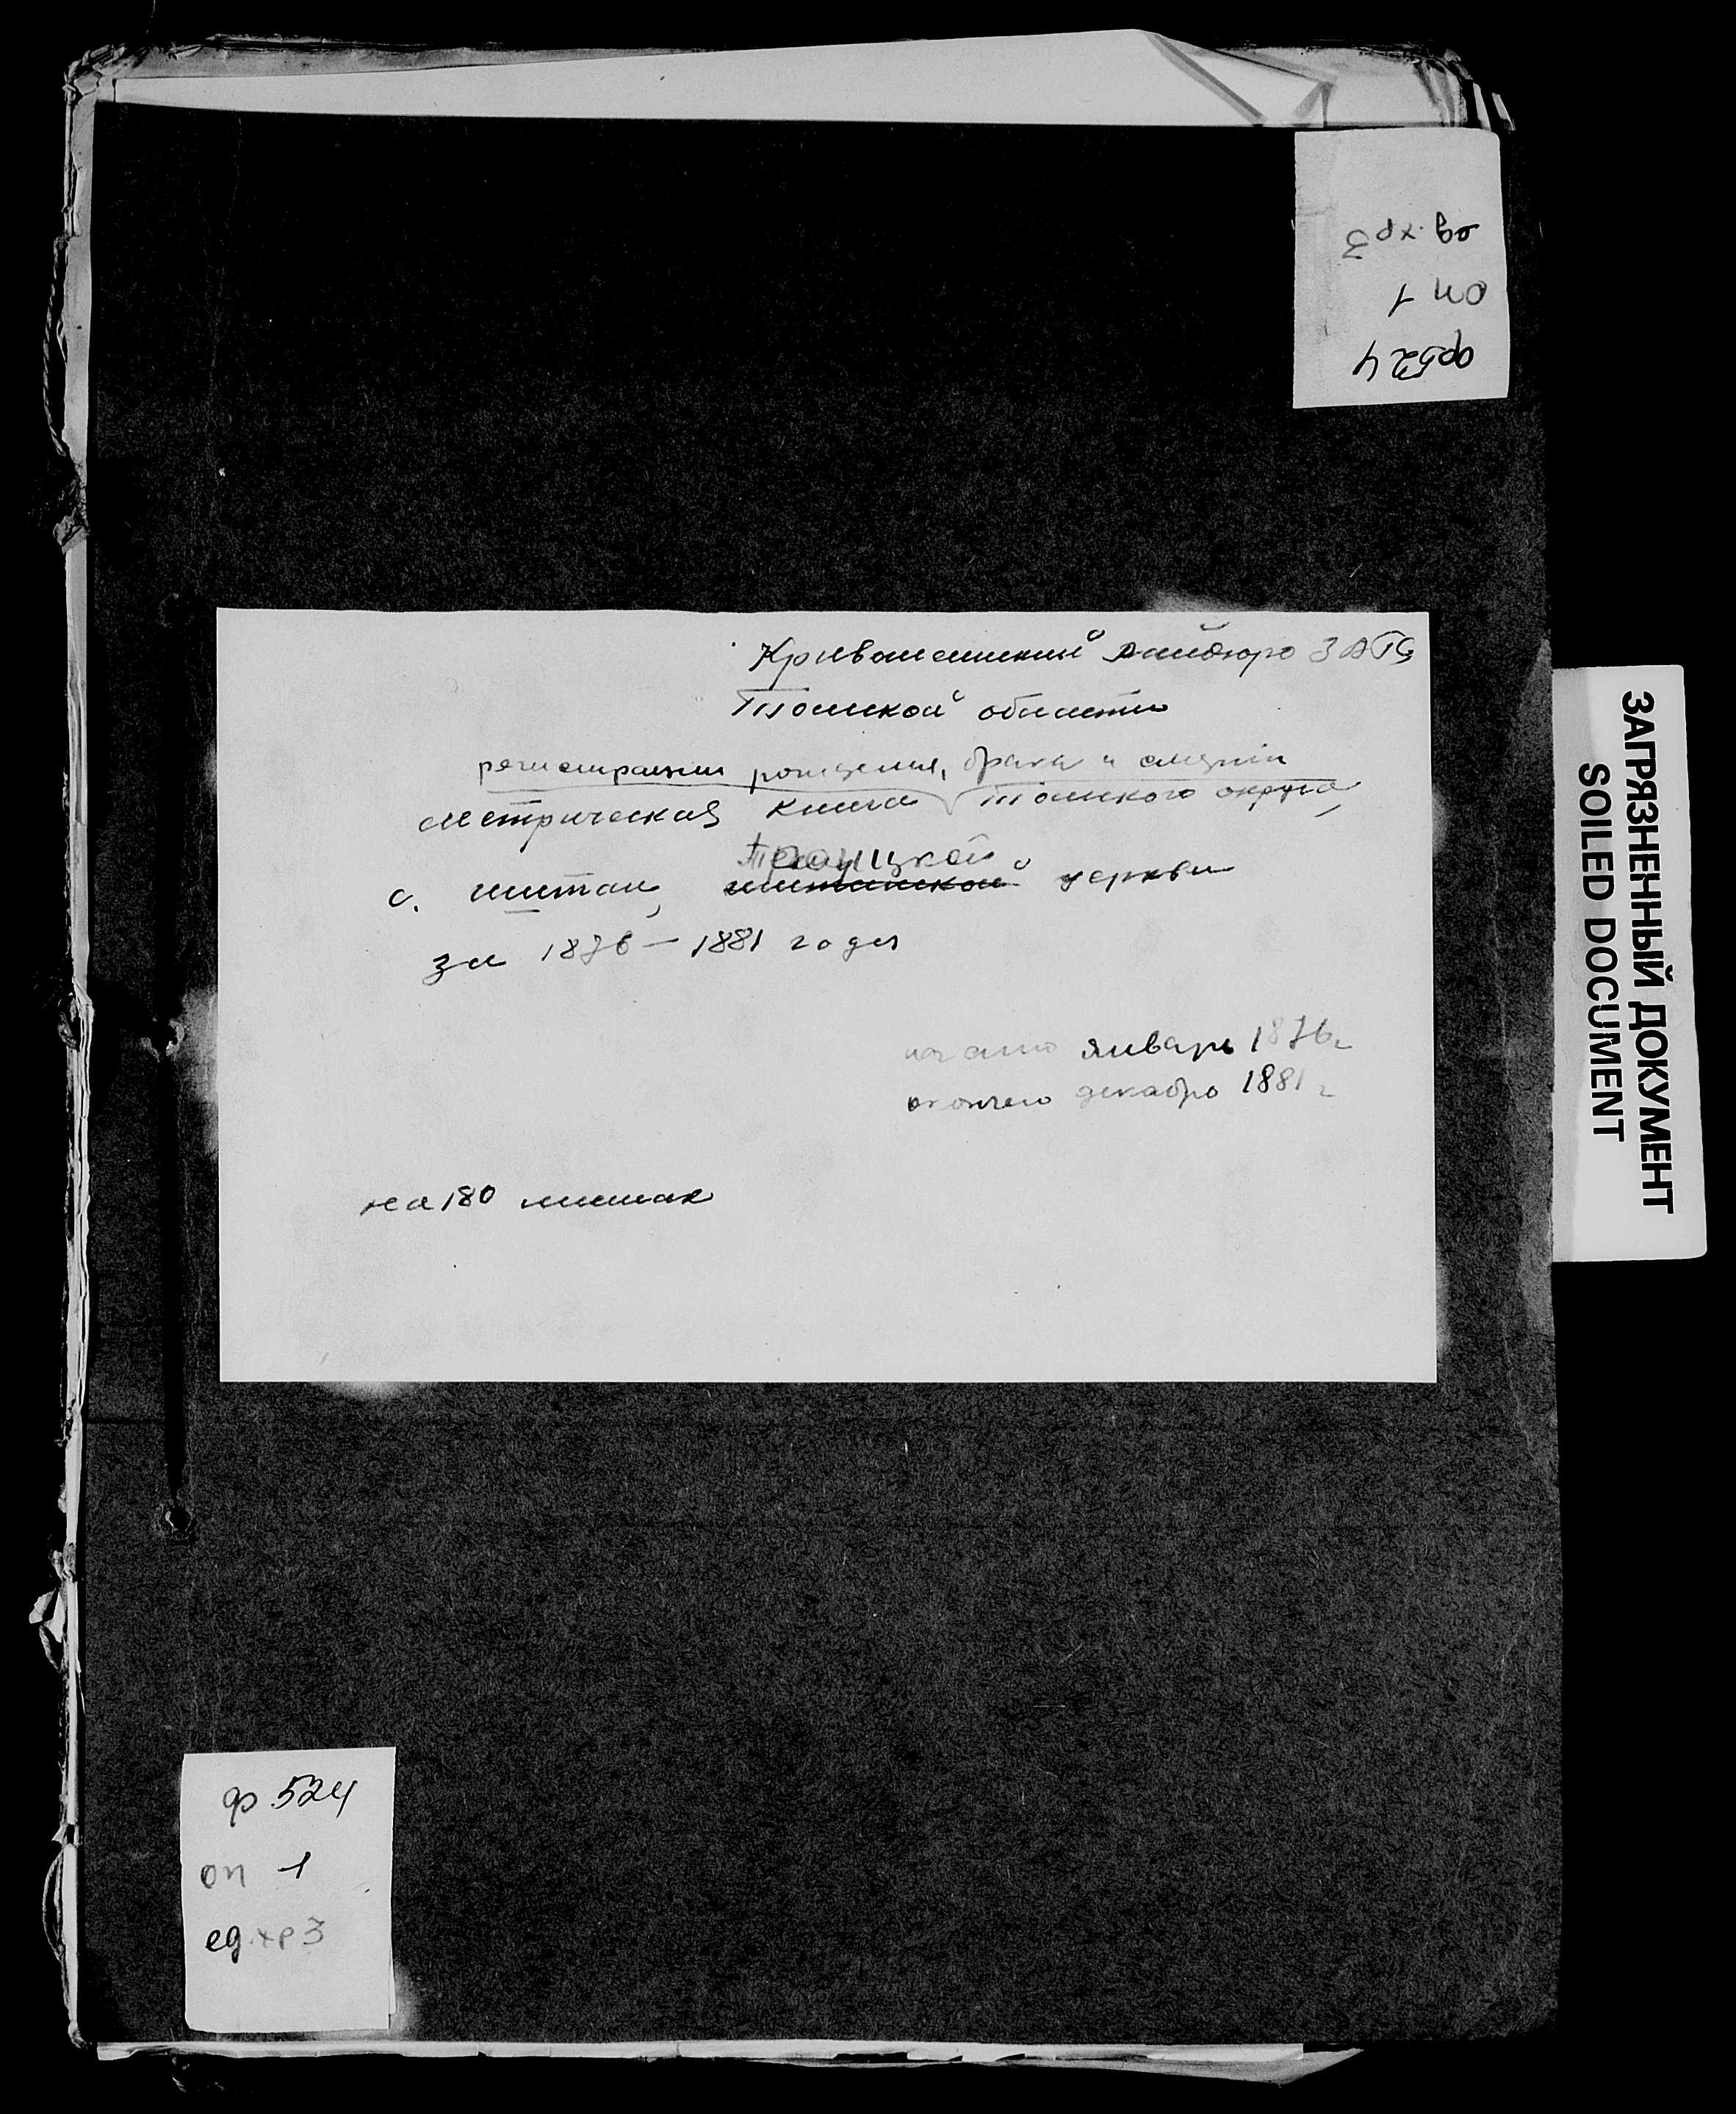 ед.хр 3
оп 1
ф 524
Кривошеинский райбюро ЗАГС
Томской области
регистрации рождения, брака и смерти
метрическая книга Томского округа,
Троицкой
с. Иштан, иштанской церкви
за 1876 – 1881 годы
начато январь 1876 г
окончено декабрь 1881 г
на 180 листах
ЗАГРЯЗНЕННЫЙ ДОКУМЕНТ
SOILED DOCUMENT
ф 524
оп 1
ед.хр 3